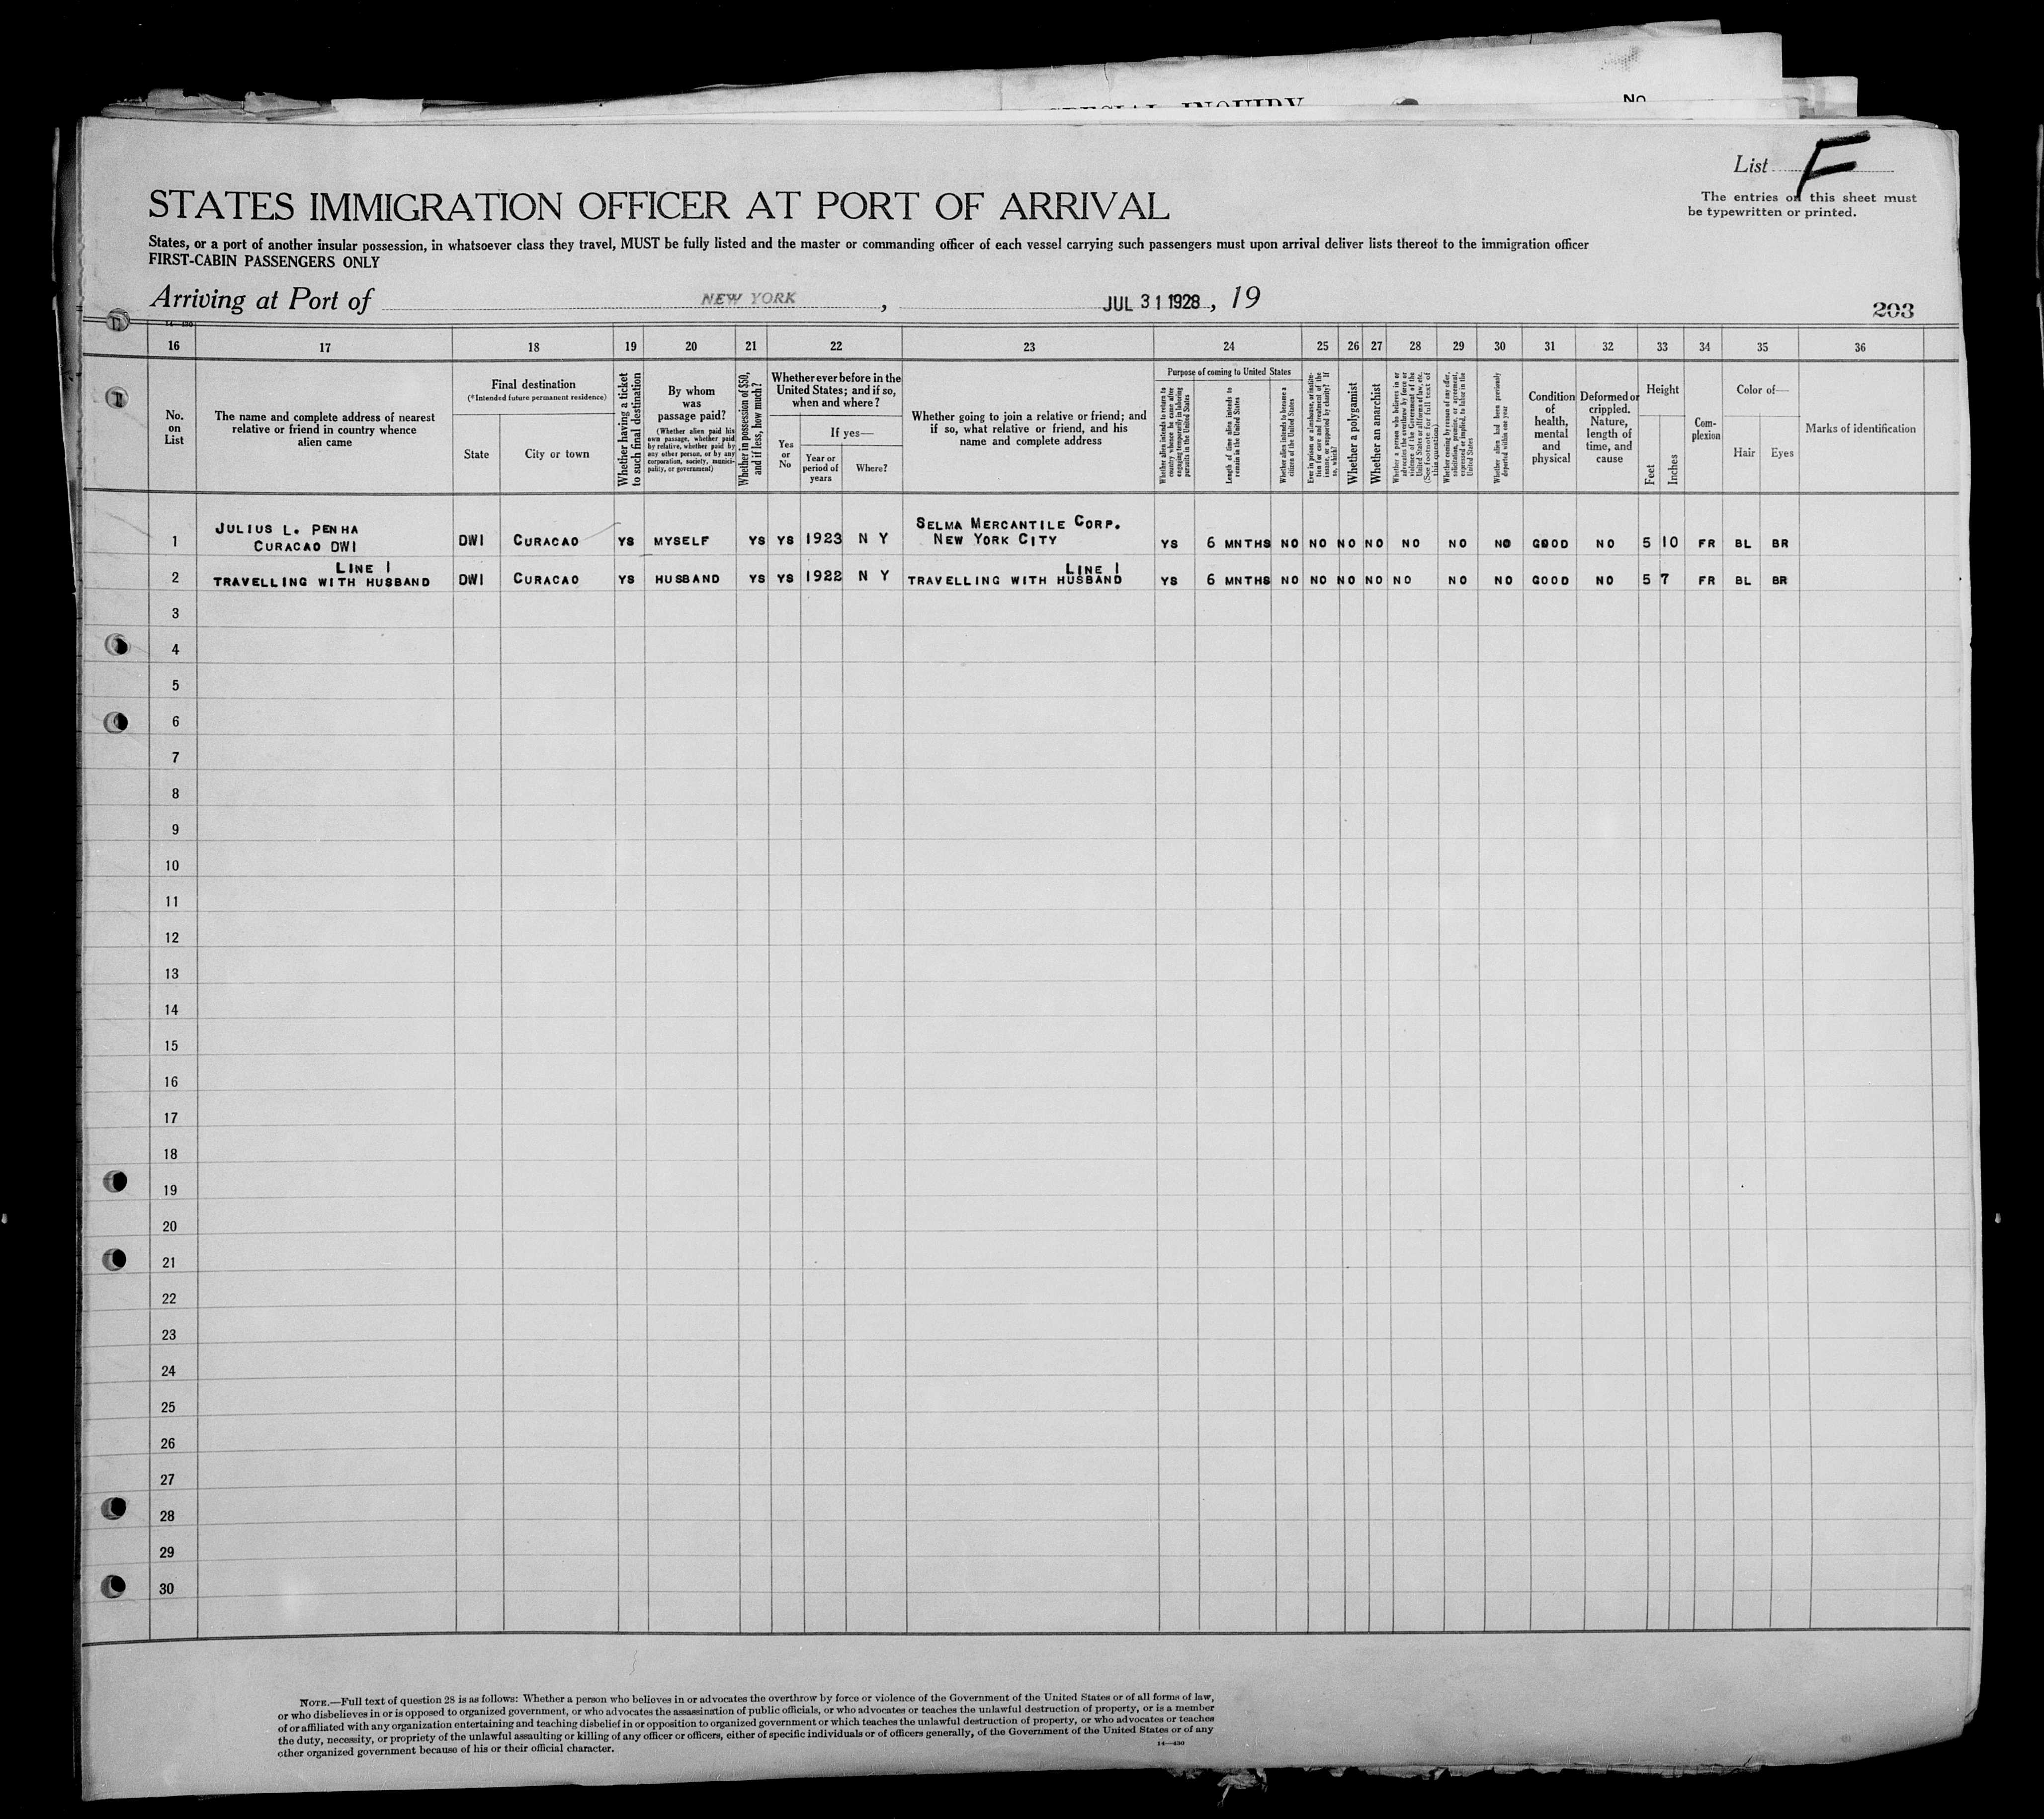 SPECIAL INQUIRY
No
List F
The entries on this sheet must
be typewritten or printed.
STATES IMMIGRATION OFFICER AT PORT OF ARRIVAL
States, or a port of another insular possession, in whatsoever class they travel, MUST be fully listed and the master or commanding officer of each vessel carrying such passengers must upon arrival deliver lists thereof to the immigration officer
FIRST-CABIN PASSENGERS ONLY
Arriving at Port of NEW YORK , JUL 31 1928 , 19
203
14—430
16 17 18 19 20 21 22 23 24 25 26 27 28 29 30 31 32 33 34 35 36
No.
on
List
The name and complete address of nearest
relative or friend in country whence
alien came
Final destination
(*Intended future permanent residence)
State
City or town
Whether having a ticket
to such final destination
By whom
was
passage paid?
(Whether alien paid his
own passage, whether paid
by relative, whether paid by
any other person, or by any
corporation, society, munici-
pality, or government)
Whether in possession of $50,
and if less, how much?
Whether ever before in the
United States; and if so,
when and where?
Yes
or
No
If yes—
Year or
period of
years
Where?
Whether going to join a relative or friend; and
if so, what relative or friend, and his
name and complete address
Purpose of coming to United States
Whether alien intends to return to
country whence he came after
engaging temporarily in laboring
pursuits in the United States
Length of time alien intends to
remain in the United States
Whether alien intends to become a
citizen of the United States
Ever in prison or almshouse, or institu-
tion for care and treatment of the
insane, or supported by charity? If
so, which?
Whether a polygamist
Whether an anarchist
Whether a person who believes in or
advocates the overthrow by force or
violence of the Government of the
United States or all forms of law, etc.
(See footnote for full text of
this question)
Whether coming by reason of any offer,
solicitation, promise, or agreement,
expressed or implied, to labor in the
United States
Whether alien had been previously
deported within one year
Condition
of
health,
mental
and
physical
Deformed or
crippled.
Nature,
length of
time, and
cause
Height
Feet
Inches
Com-
plexion
Color of—
Hair
Eyes
Marks of identification
1 JULIUS L. PENHA
CURACAO DWI
DWI CURACAO YS MYSELF YS YS 1923 N Y
SELMA MERCANTILE CORP.
NEW YORK CITY
YS 6 MNTHS NO NO NO NO NO NO NO GOOD NO 5 10 FR BL BR
2 LINE 1
TRAVELLING WITH HUSBAND
DWI CURACAO YS HUSBAND YS YS 1922 N Y
LINE 1
TRAVELLING WITH HUSBAND
YS 6 MNTHS NO NO NO NO NO NO NO GOOD NO 5 7 FR BL BR
3
4
5
6
7
8
9
10
11
12
13
14
15
16
17
18
19
20
21
22
23
24
25
26
27
28
29
30
NOTE.—Full text of question 28 is as follows: Whether a person who believes in or advocates the overthrow by force or violence of the Government of the United States or of all forms of law,
or who disbelieves in or is opposed to organized government, or who advocates the assassination of public officials, or who advocates or teaches the unlawful destruction of property, or is a member
of or affiliated with any organization entertaining and teaching disbelief in or opposition to organized government or which teaches the unlawful destruction of property, or who advocates or teaches
the duty, necessity, or propriety of the unlawful assaulting or killing of any officer or officers, either of specific individuals or of officers generally, of the Government of the United States or of any
other organized government because of his or their official character.
14—430